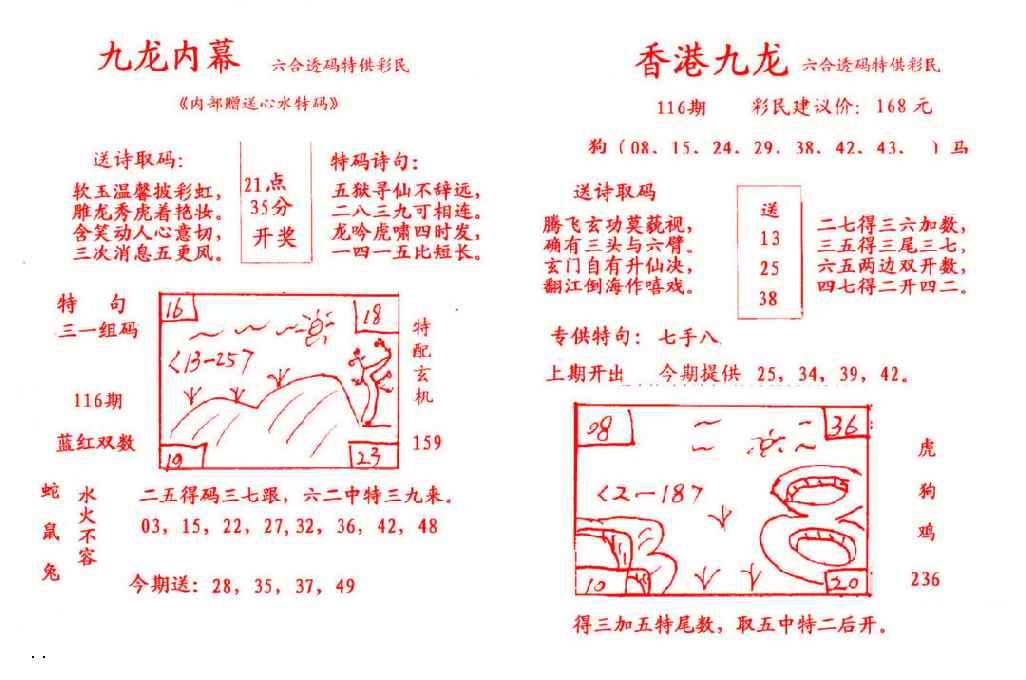 九龙内幕 六合透码特供彩民
《内部赠送心水特码》
送诗取码:
软玉温馨披彩虹,
雕龙秀虎着艳妆。
含笑动人心意切,
三次消息五更风。
21点
35分
开奖
特码诗句:
五狱寻仙不辞远,
二八三九可相连。
龙吟虎啸四时发,
一四一五比短长。
特 句
三一组码
116期
蓝红双数
16
18
<13-257
19
23
特配玄机
159
蛇鼠兔
水火不容
二五得码三七跟, 六二中特三九来。
03, 15, 22, 27, 32, 36, 42, 48
今期送: 28, 35, 37, 49
香港九龙 六合透码特供彩民
116期 彩民建议价: 168元
狗 (08、15、24、29、38、42、43、 ) 马
送诗取码
腾飞玄功莫藐视,
确有三头与六臂。
玄门自有升仙决,
翻江倒海作嘻戏。
送
13
25
38
二七得三六加数,
三五得三尾三七,
六五两边双开数,
四七得二开四二。
专供特句: 七手八
上期开出 今期提供 25, 34, 39, 42。
08
36
<2-187
10
20
虎
狗
鸡
236
得三加五特尾数, 取五中特二后开。